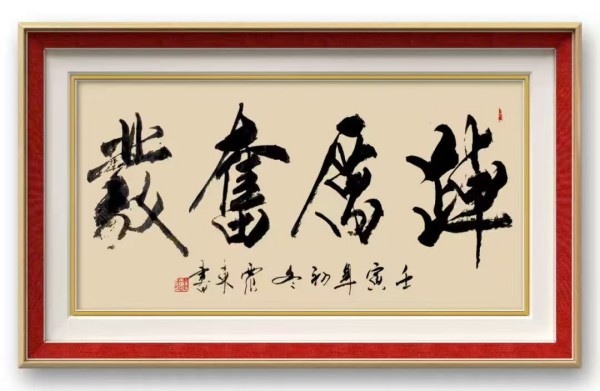 踔厲奮發
壬寅年初冬震東書